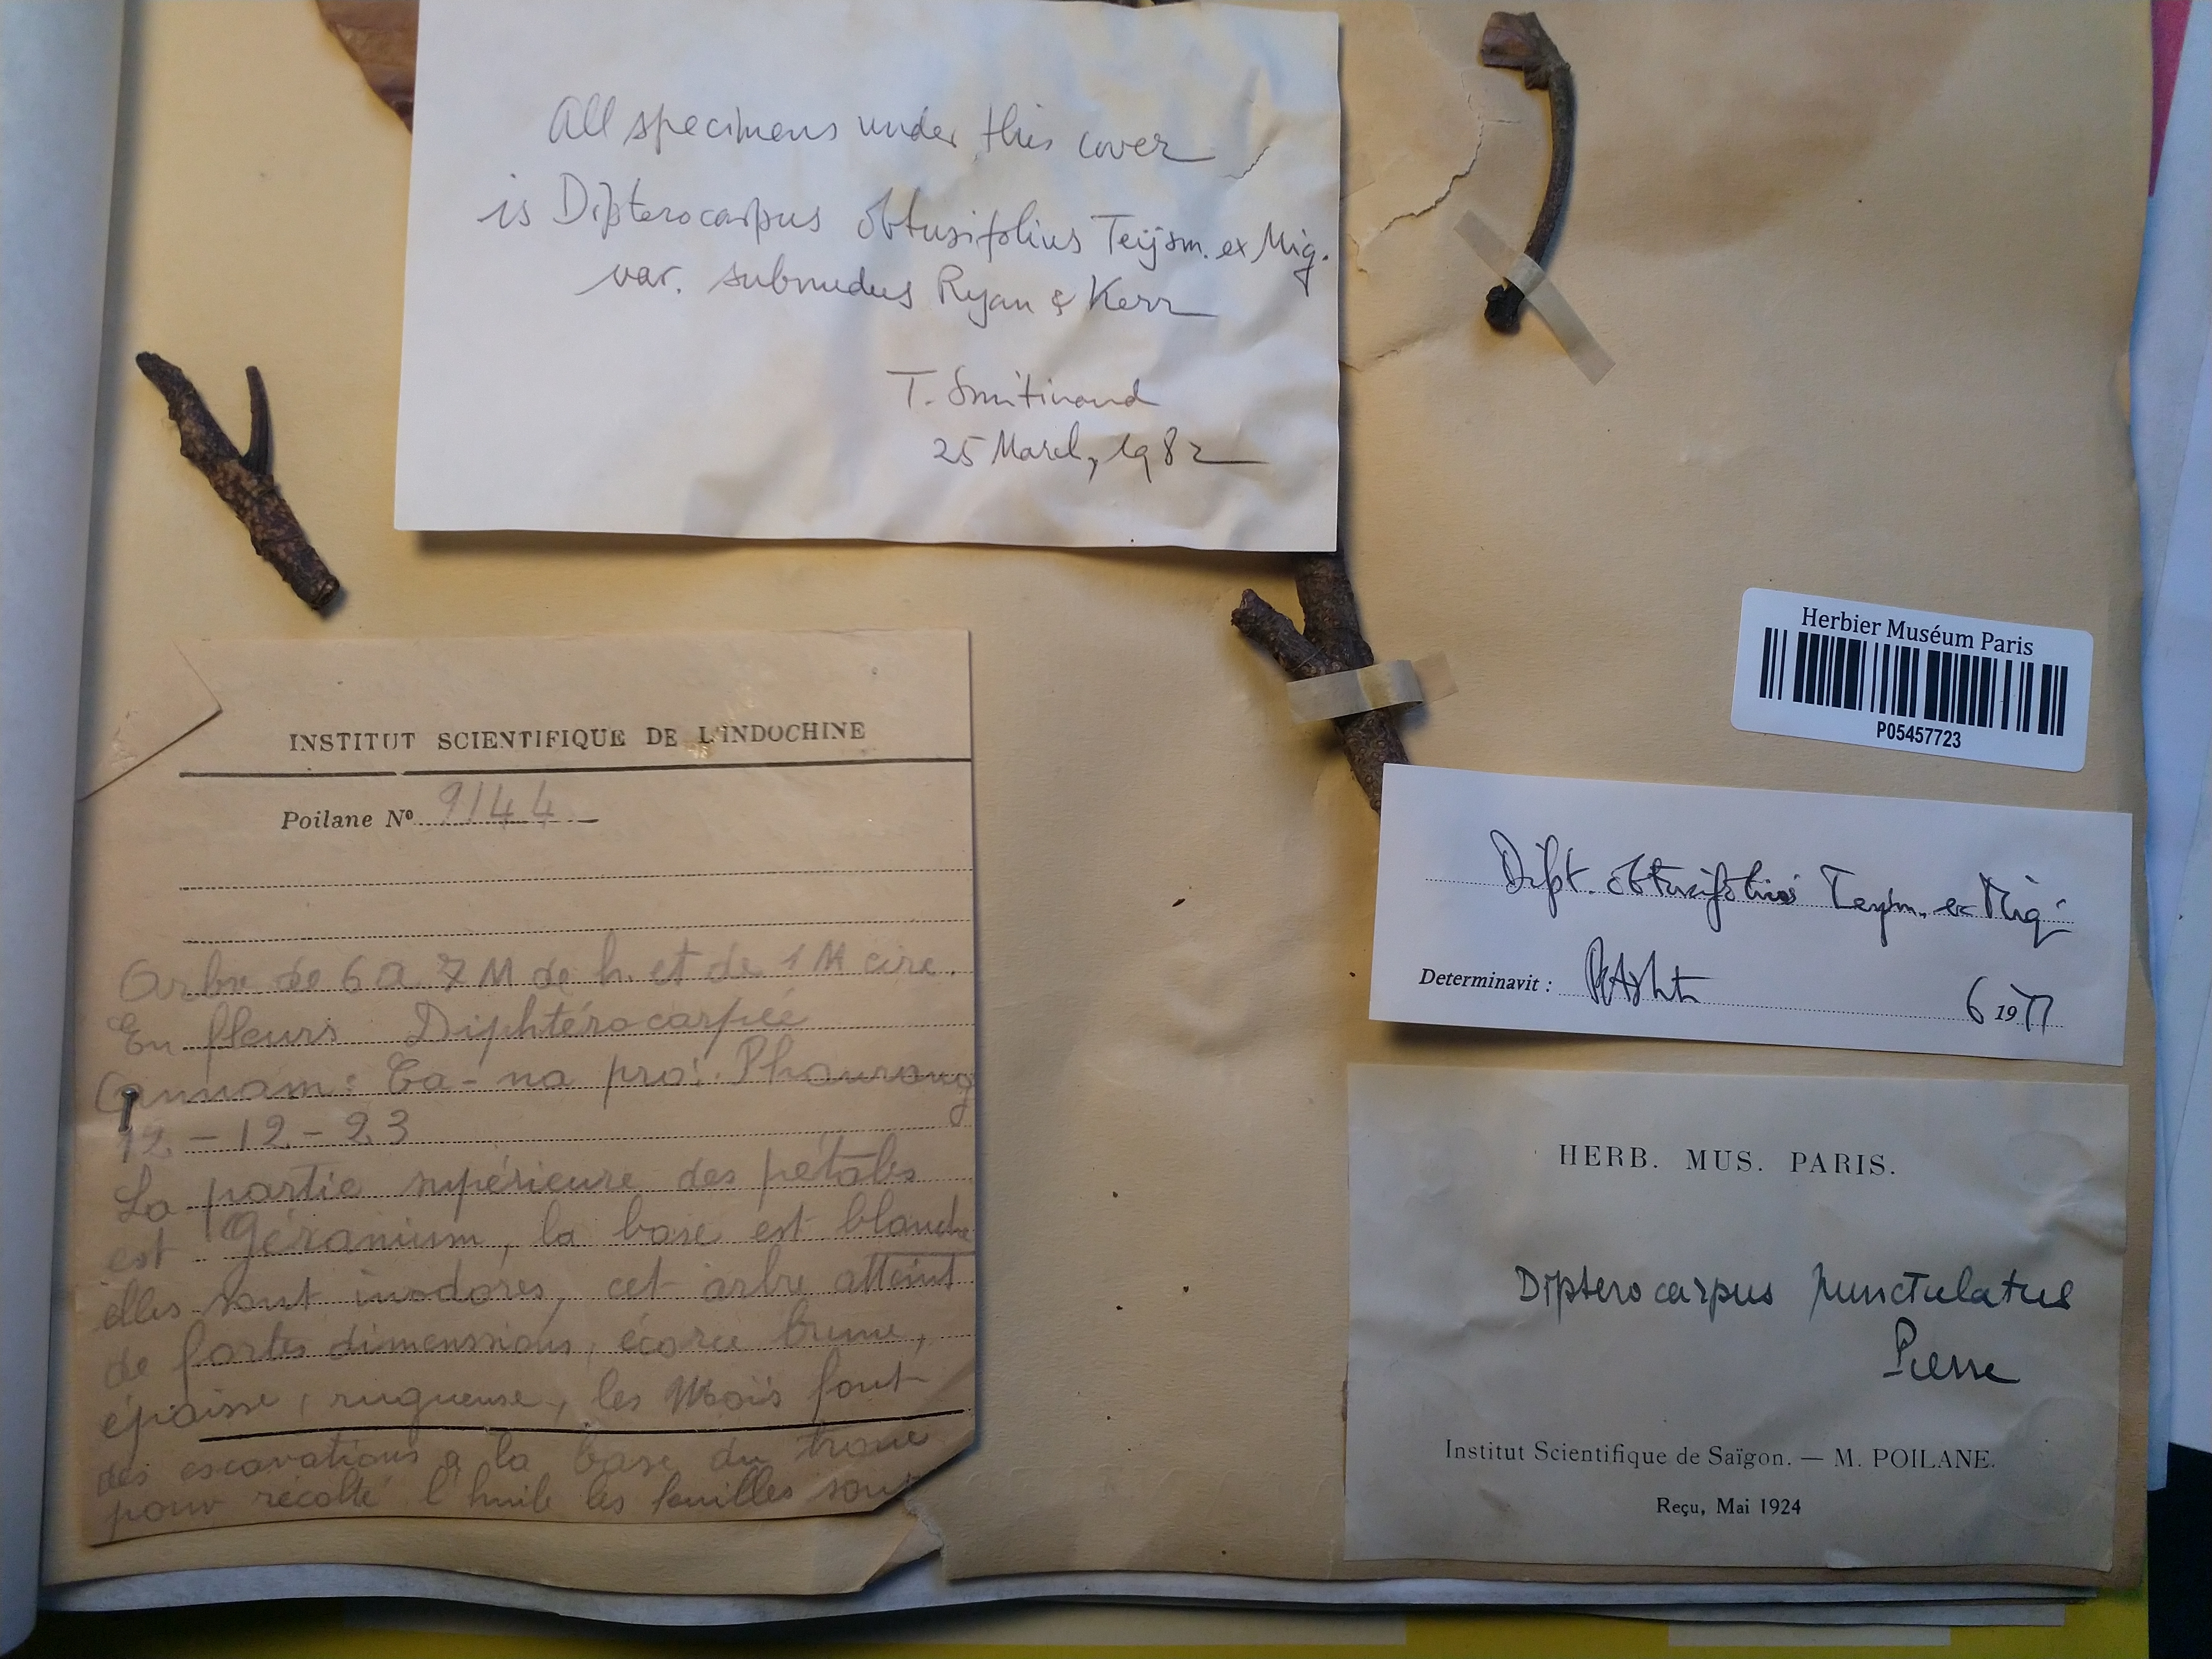 All specimens under this cover
is Dipterocarpus obtusifolius Teijsm. ex Miq.
var. subnudus Ryan & Kerr
T. Smitinand
25 March, 1982
Herbier Muséum Paris
P05457723
INSTITUT SCIENTIFIQUE DE L'INDOCHINE
Poilane Nº 9144
Arbre de 6 a 7 M de h. et de 1 M circ.
En fleurs Diphtérocarpée
Annam: Ca-na pro: Phanrang
12-12-23
La partie supérieure des pétales
est Géranium, la base est blanche
elles sont inodores, cet arbre atteint
de fortes dimenssions, écorce brune,
épaisse, rugueuse, les Moïs font
des escavations a la base du tronc
pour récolté l'huile les feuilles sont
Dipt. obtusifolius Teysm. ex Miq
Determinavit : PSAshton 6 1977
HERB. MUS. PARIS.
Dipterocarpus punctulatus
Pierre
Institut Scientifique de Saïgon. — M. POILANE.
Reçu, Mai 1924